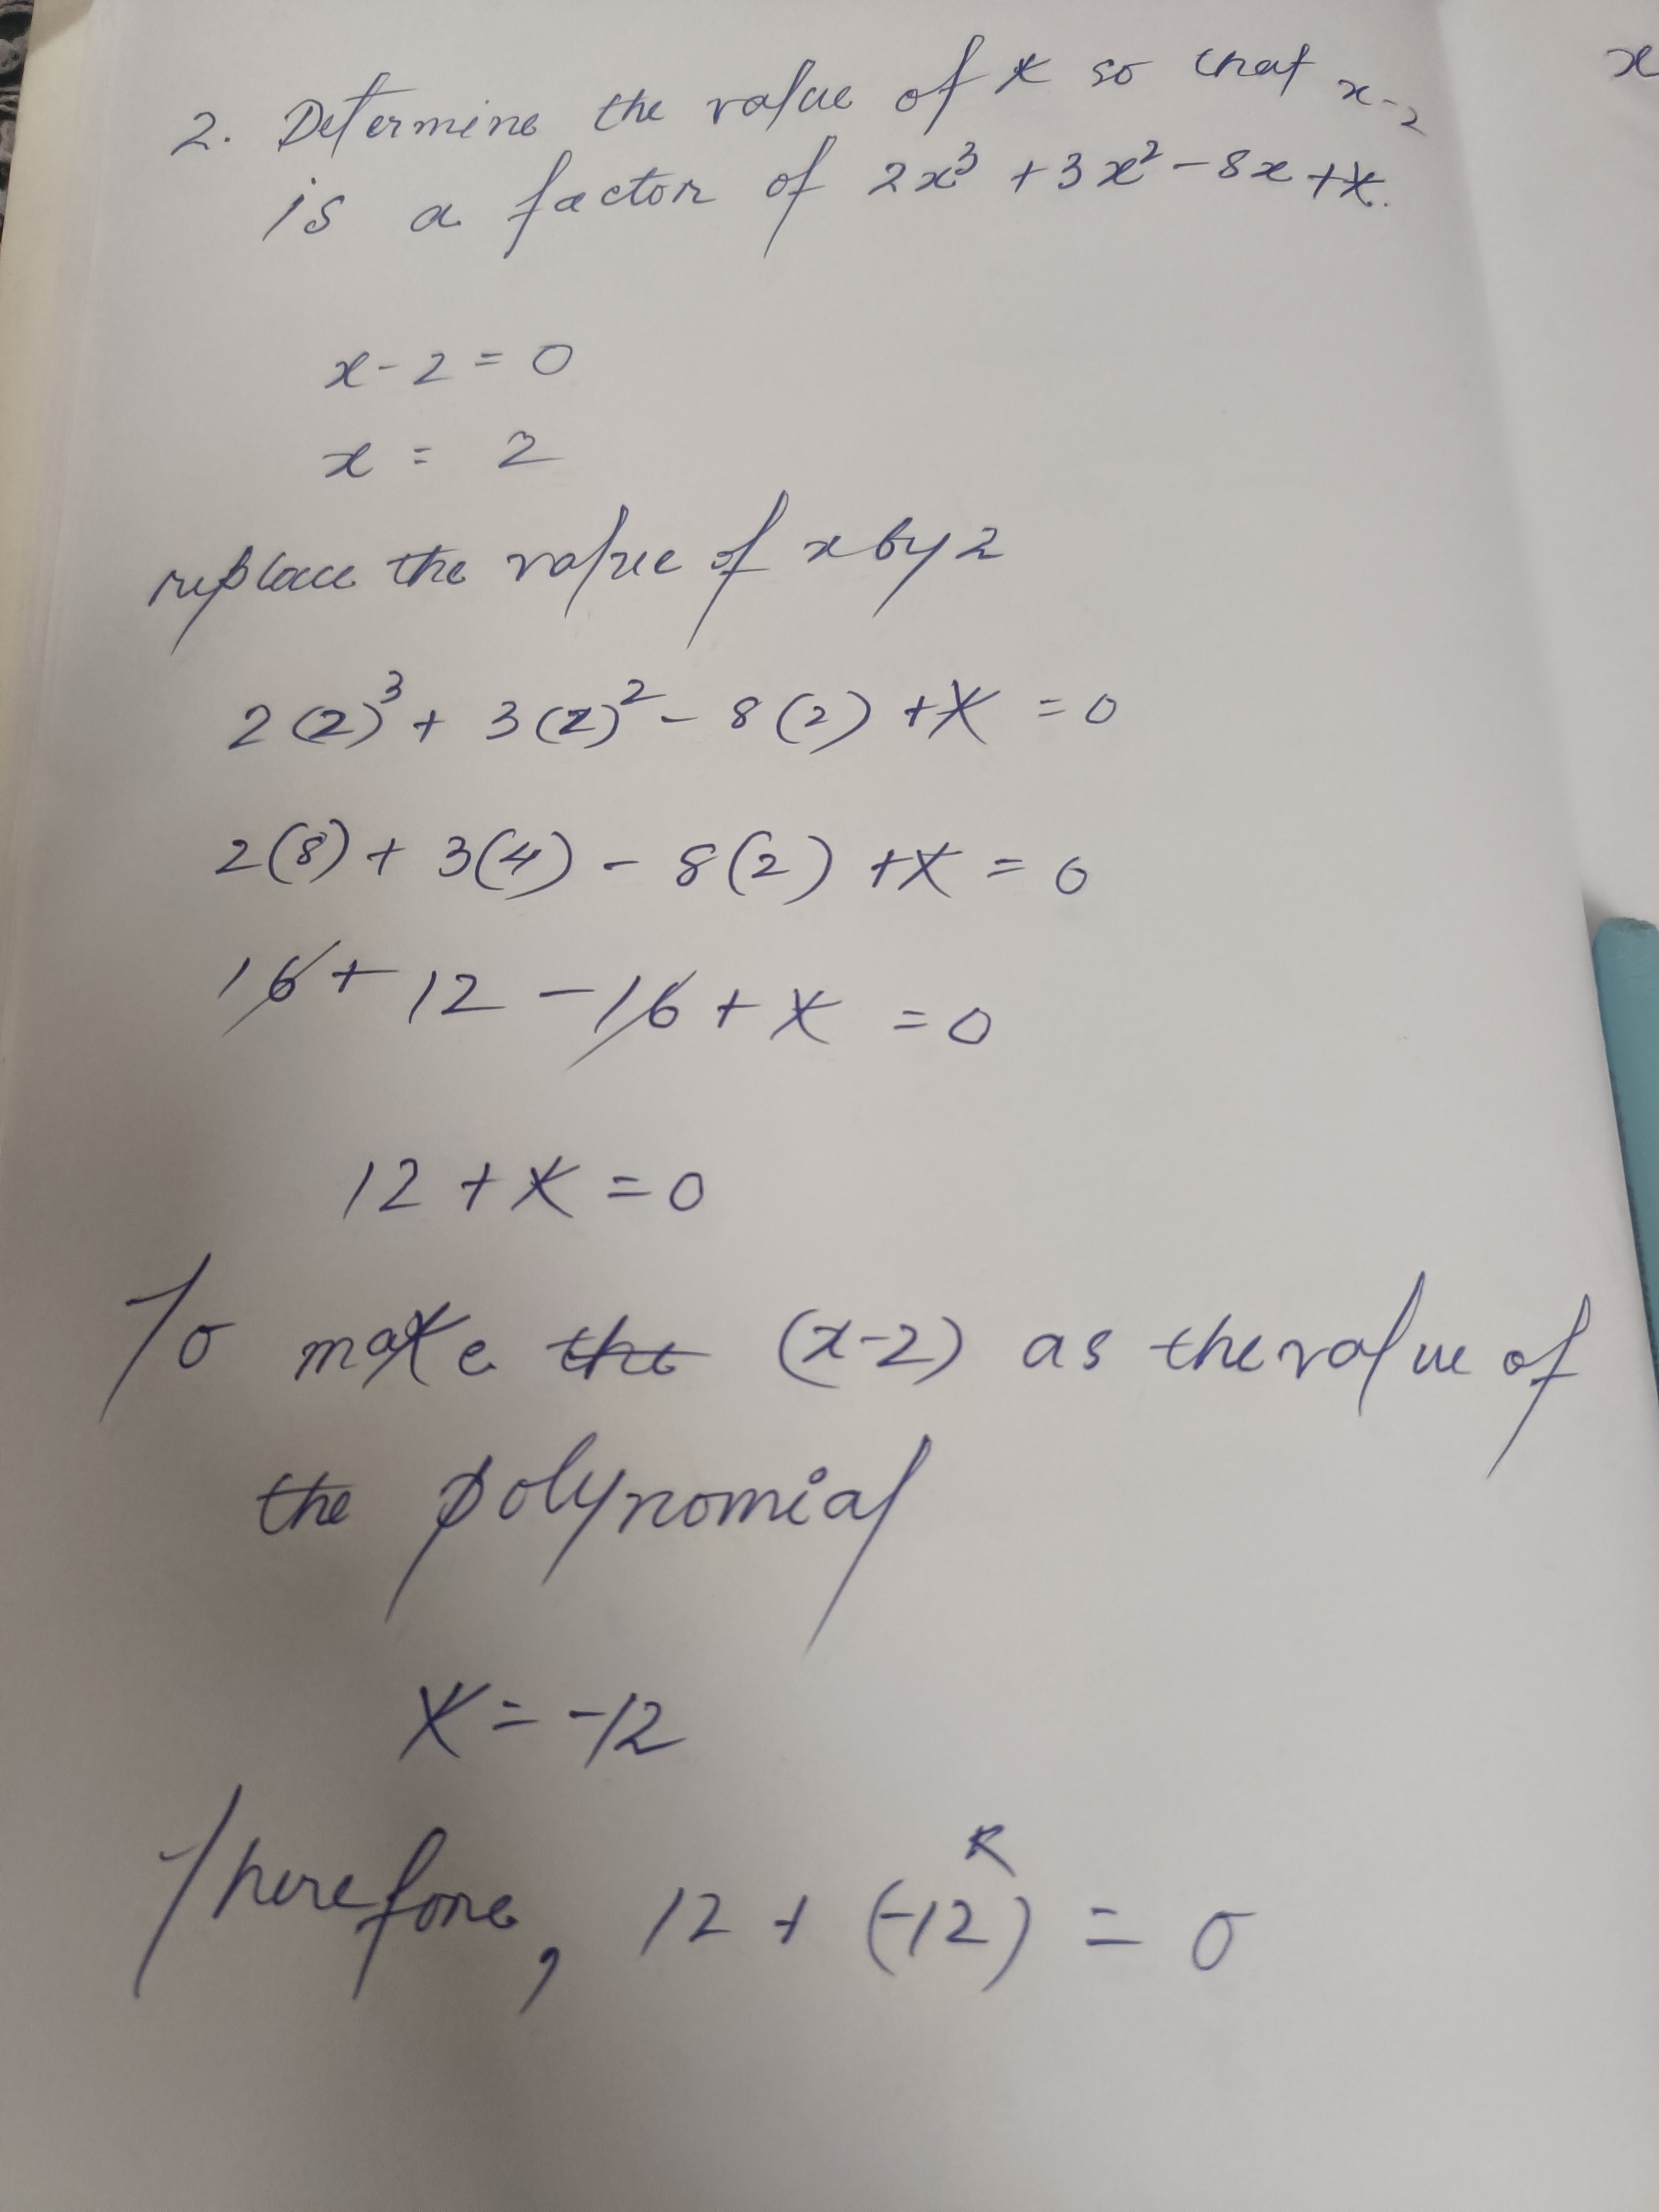 2. Determine the value of k so that x-2
is a factor of 2x³ + 3x² - 8x + k.
x
x - 2 = 0
x = 2
replace the value of x by 2
2(2)³ + 3(2)² - 8(2) + k = 0
2(8) + 3(4) - 8(2) + k = 0
16 + 12 - 16 + k = 0
12 + k = 0
To make the (x-2) as the value of
the polynomial
k = -12
k
Therefore, 12 + (-12) = 0